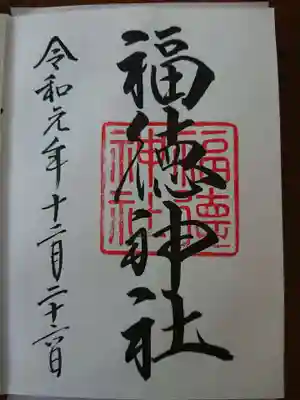 福徳神社
福徳神社
令和元年十二月二十六日